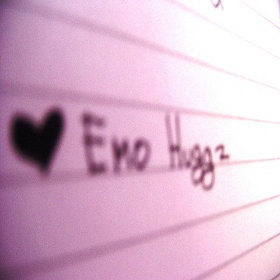 ♥ Emo Huggz